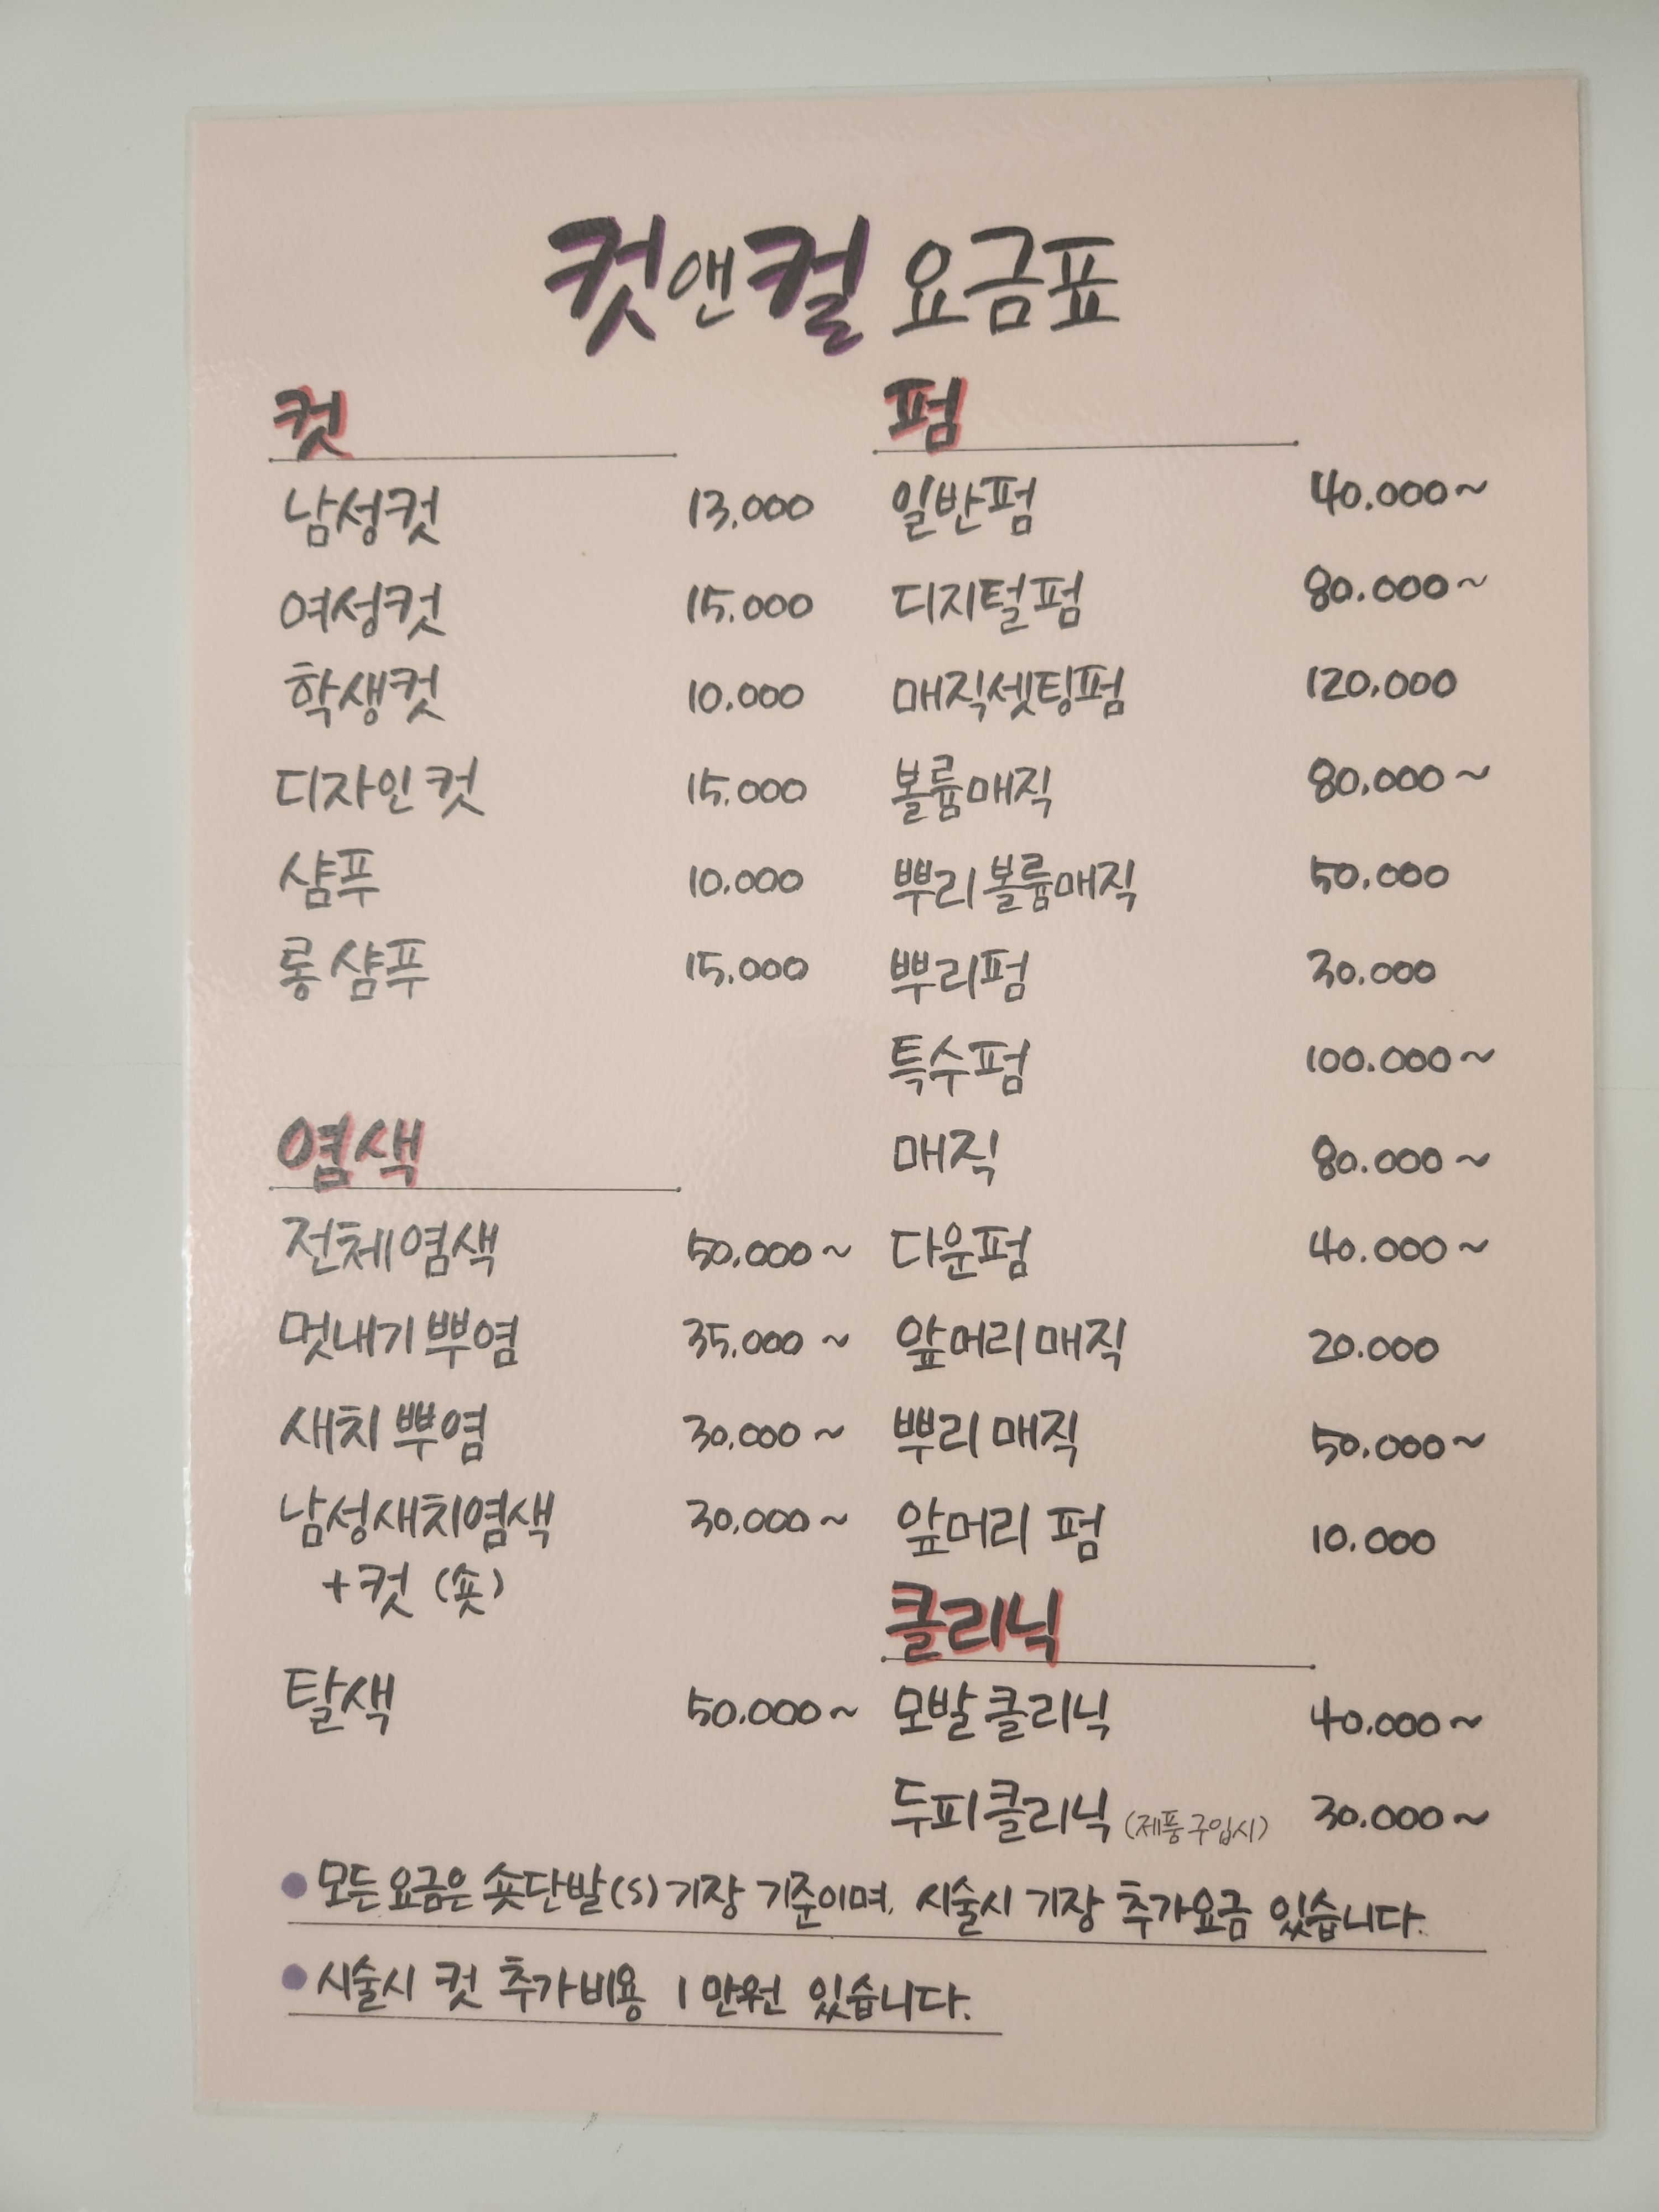 컷앤컬 요금표
컷
남성컷 13.000
여성컷 15.000
학생컷 10.000
디자인컷 15.000
샴푸 10.000
롱샴푸 15.000
염색
전체염색 50.000~
멋내기뿌염 35.000~
새치뿌염 30.000~
남성새치염색 30.000~
+컷 (숏)
탈색 50.000~
펌
일반펌 40.000~
디지털펌 80.000~
매직셋팅펌 120.000
볼륨매직 80.000~
뿌리볼륨매직 50.000
뿌리펌 30.000
특수펌 100.000~
매직 80.000~
다운펌 40.000~
앞머리매직 20.000
뿌리매직 50.000~
앞머리 펌 10.000
클리닉
모발클리닉 40.000~
두피클리닉 (제품구입시) 30.000~
● 모든요금은 숏단발(S)기장 기준이며, 시술시 기장 추가요금 있습니다.
● 시술시 컷 추가비용 1만원 있습니다.